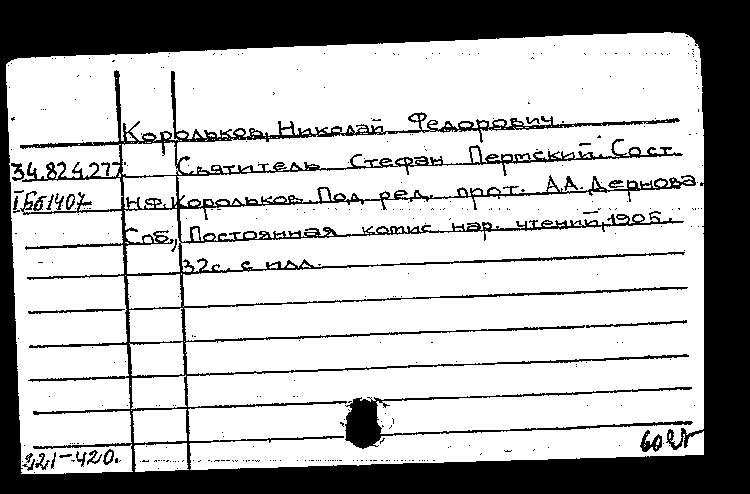 Корольков, Николай Федорович.
34.82 4.277 Святитель Стефан Пермский. Сост.
Н.Ф. Корольков. Под ред. прот. А.А. Дернова.
Спб., Постоянная комис нар. чтений, 1905.
32с. с илл.
221-420.